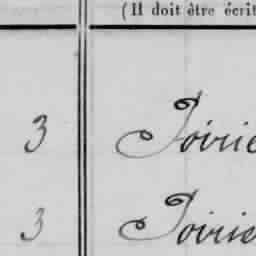 (Il doit être écrit
3 Poirie
3 Poirie